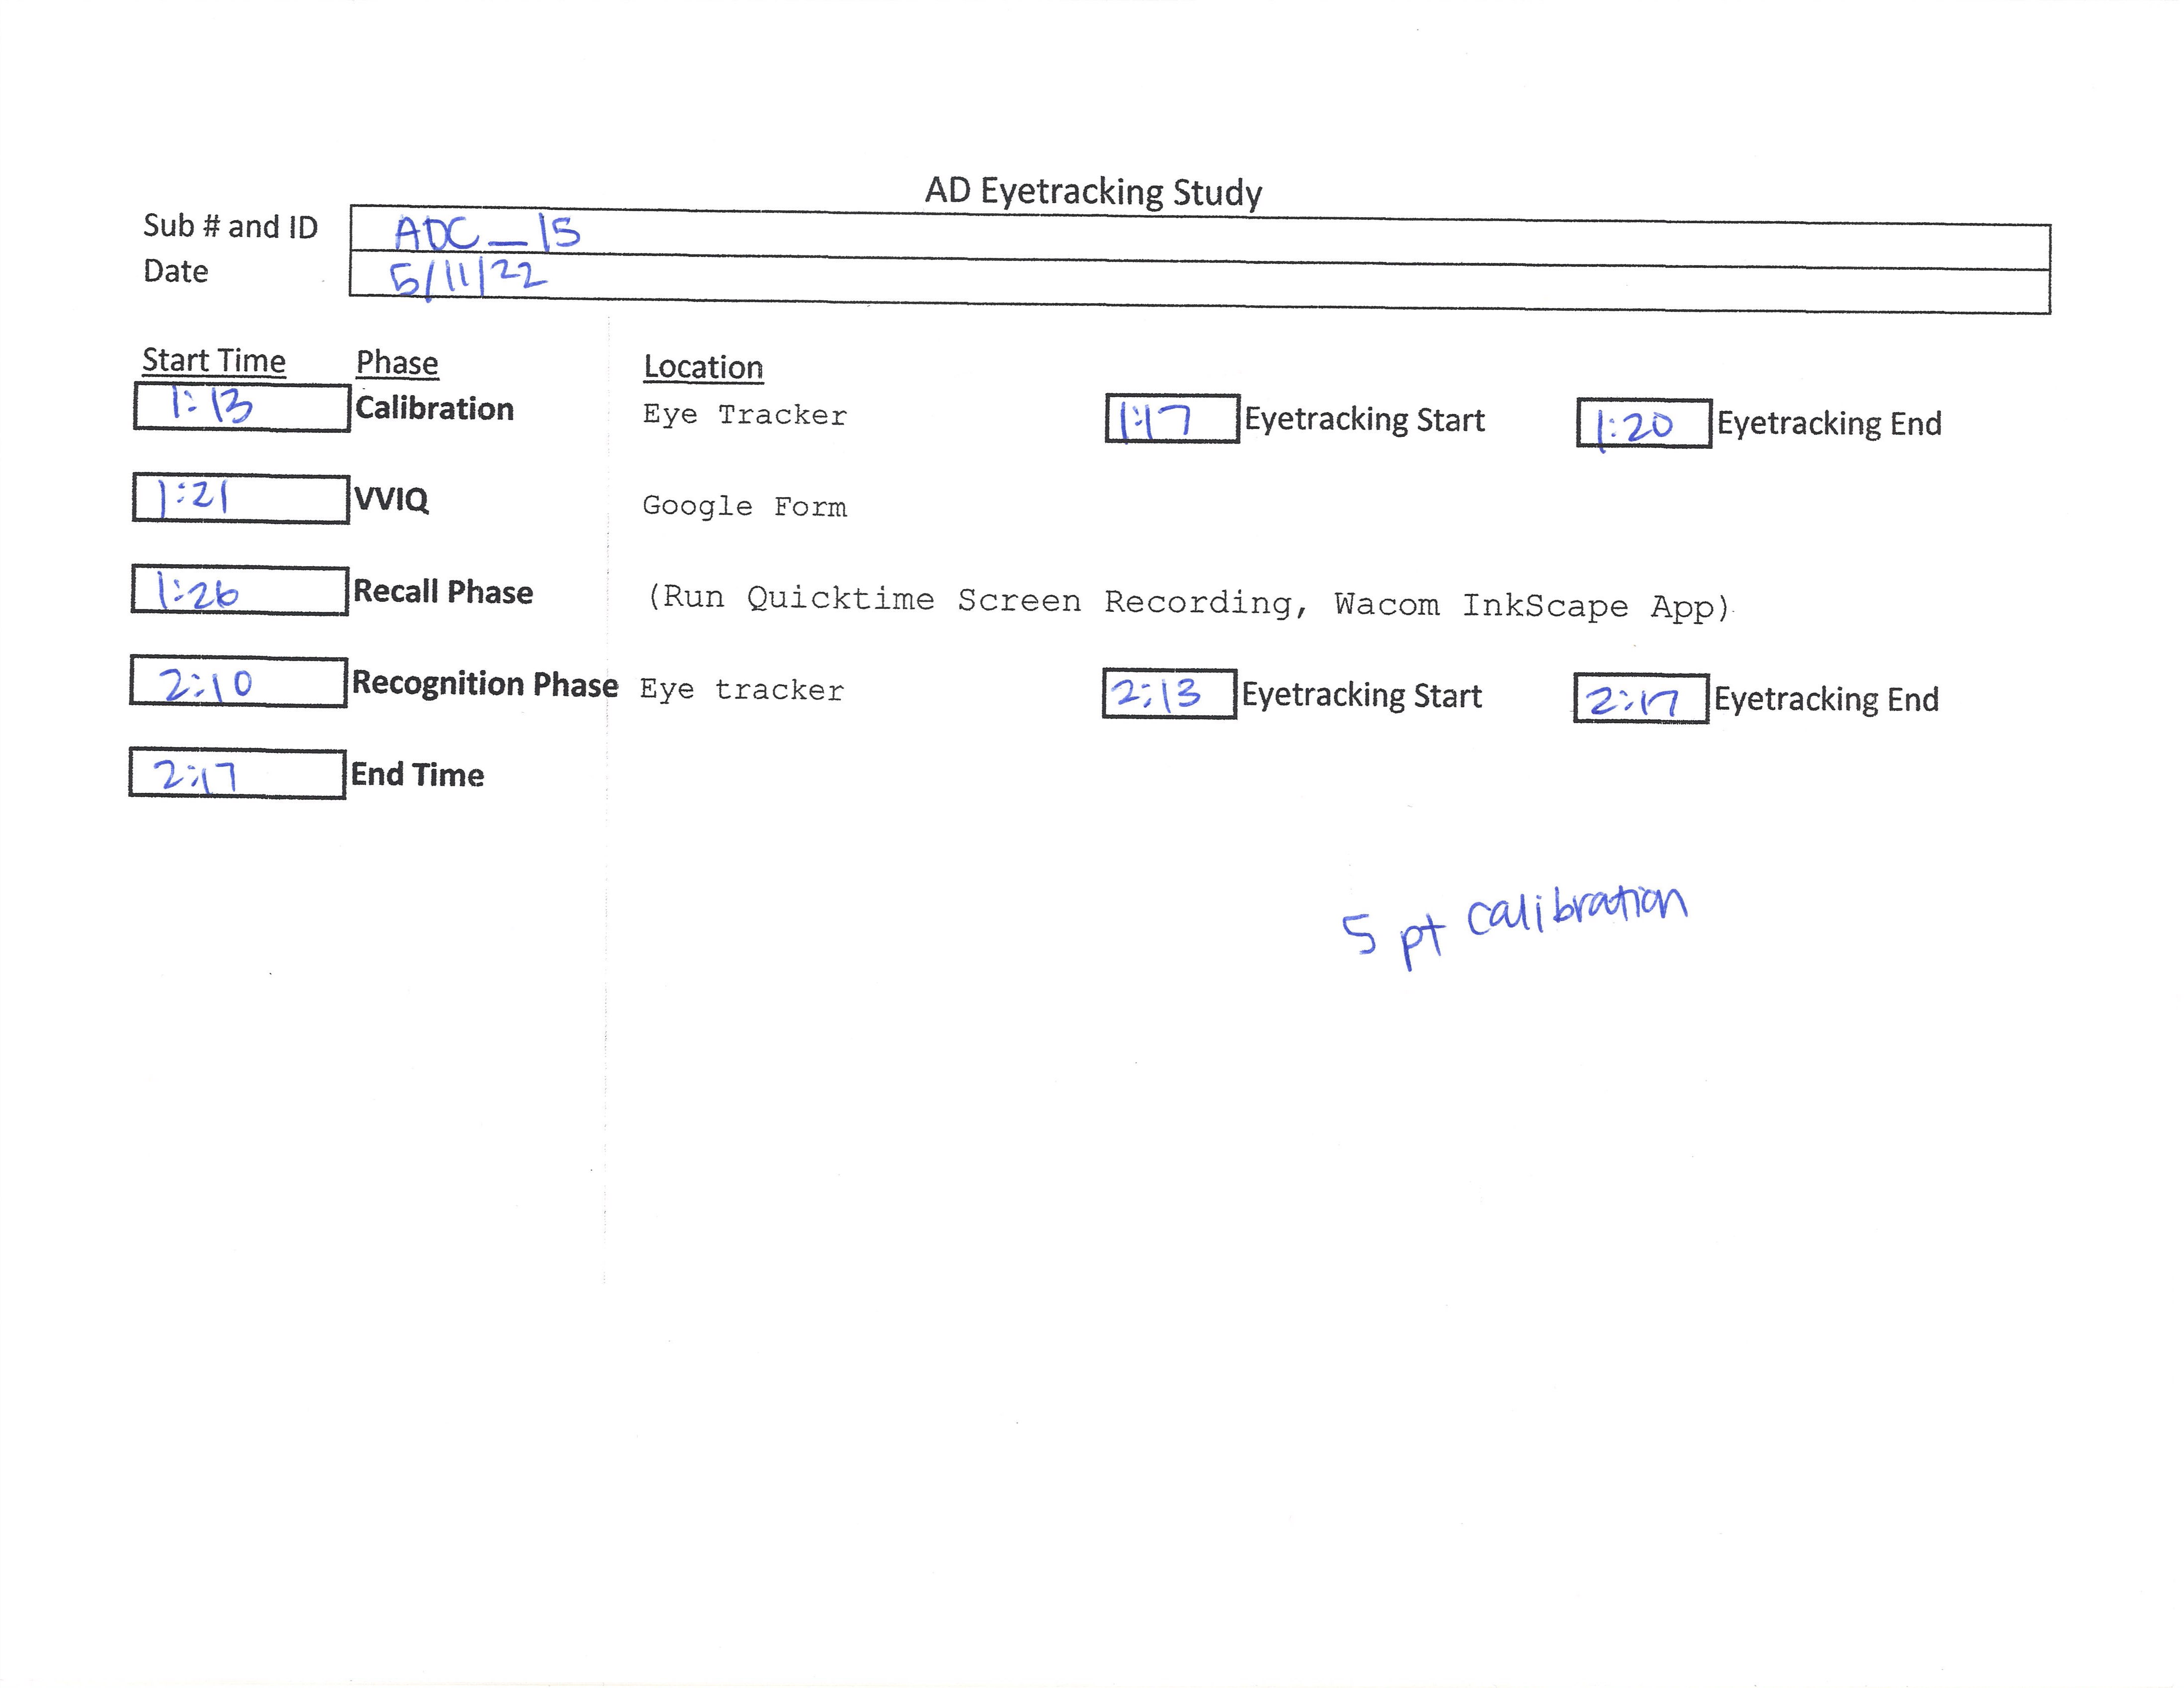 AD Eyetracking Study
Sub # and ID ADC_15
Date 5/11/22
Start Time Phase Location
1:13 Calibration Eye Tracker 1:17 Eyetracking Start 1:20 Eyetracking End
1:21 VVIQ Google Form
1:26 Recall Phase (Run Quicktime Screen Recording, Wacom InkScape App)
2:10 Recognition Phase Eye tracker 2:13 Eyetracking Start 2:17 Eyetracking End
2:17 End Time
5 pt calibration